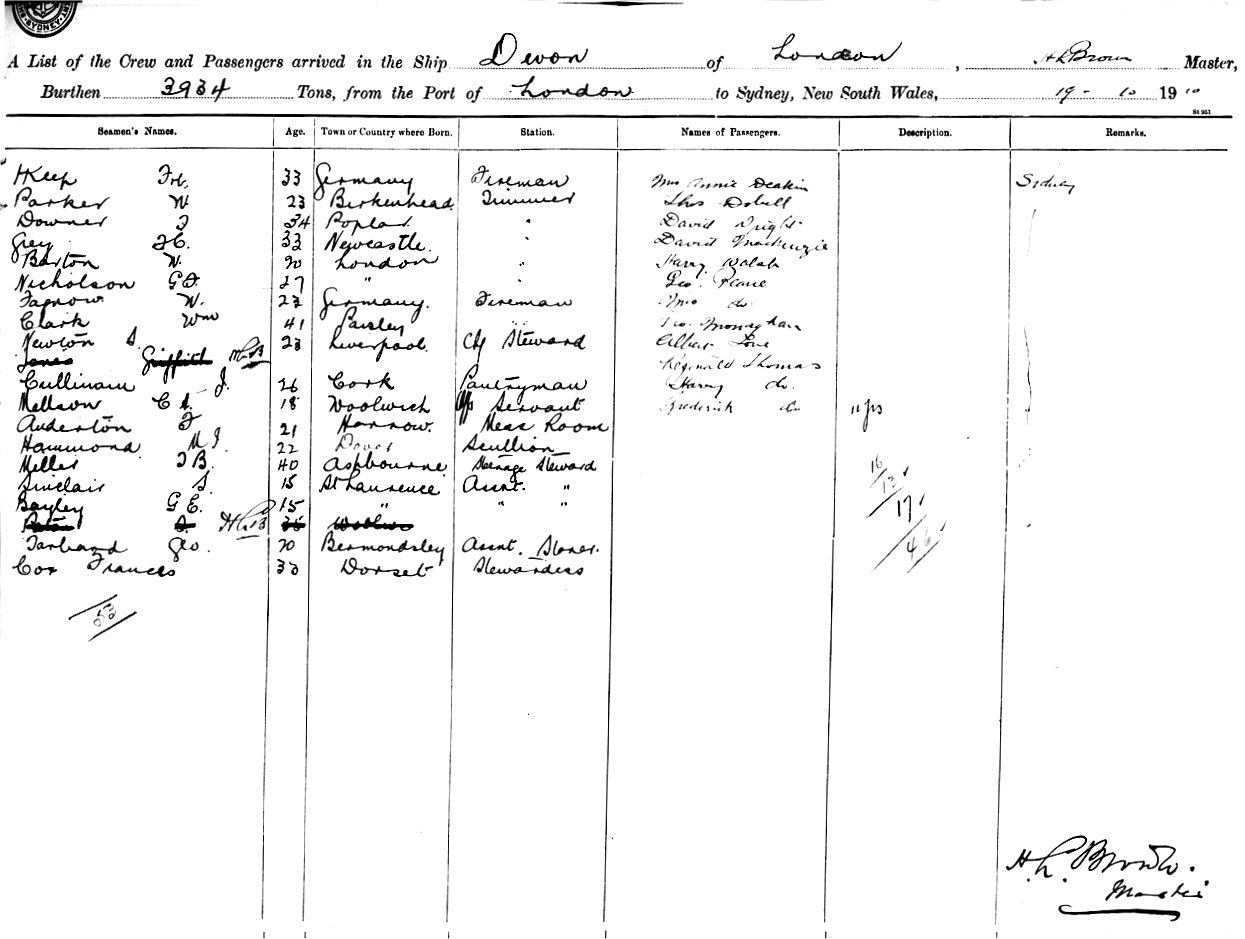 SYDNEY
A List of the Crew and Passengers arrived in the Ship Devon of London, H L Brown Master,
Burthen 3934 Tons, from the Port of London to Sydney, New South Wales, 19 - 10 1910
St 951
Seamen's Names. Age. Town or Country where Born. Station. Names of Passengers. Description. Remarks.
33 Germany Fireman Mrs Annie Deakin Sydney
Parker W 23 Birkenhead Trimmer Thos Dobell
Downer 34 Poplar " David Wright
Grey 33 Newcastle. " David Mackenzie
Barton W. 20 London " Harry Walsh
Nicholson 27 " " Geo.
W. 23 Germany. Fireman Mrs do.
Clark Wm 41 Paisley Monaghan
Newton S. 23 Liverpool. Ch Steward Albert
Jones Griffith Reginald Thomas
Cullinane J. 26 Cork Pantryman Harry do.
Mellson 18 Woolwich Servant Frederick do 11 yrs
Anderton F 21 Harrow. Mess Room
Hammond 22 Dover Scullion
Miller 40 Ashbourne Steerage Steward 16
Sinclair S. 15 St Laurence Assnt. " 13
Bayley G E. 15 " " " 17
Woolwich
Geo. 20 Bermondsley Assnt. Storer. 46
Cox Frances 33 Dorset Stewardess
H. L. Brown.
Master